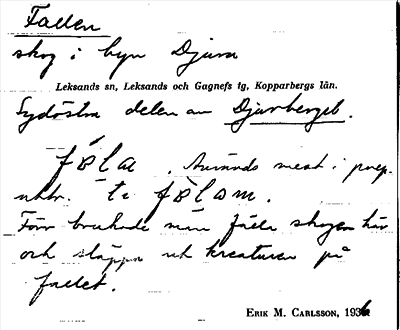 Fallen
skog i byn Djura
Leksands sn, Leksands och Gagnefs tg, Kopparbergs län.
Sydöstra delen av Djurberget.
fəla. Används mest i prep.
uttr. te fəlom.
Förr brukade man fälla skogen här
och släppa ut kreaturen på
fallet.
ERIK M. CARLSSON, 1936